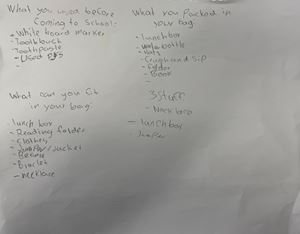 What you used before
coming to school:
- White board marker
- Toothbruch
- Toothpaste
- Used
-
What can you fit
in your bag:
- lunch box
- Reading folder
- Clothes
- Jumper/Jacket
- Beanie
- necklace
What you Packed in
your bag:
- lunchbox
- bottle
- Hat
- Crunch and Sip
- folder
- Book
-
3 Stuff
- Necklace
- lunchbox
- Jumper